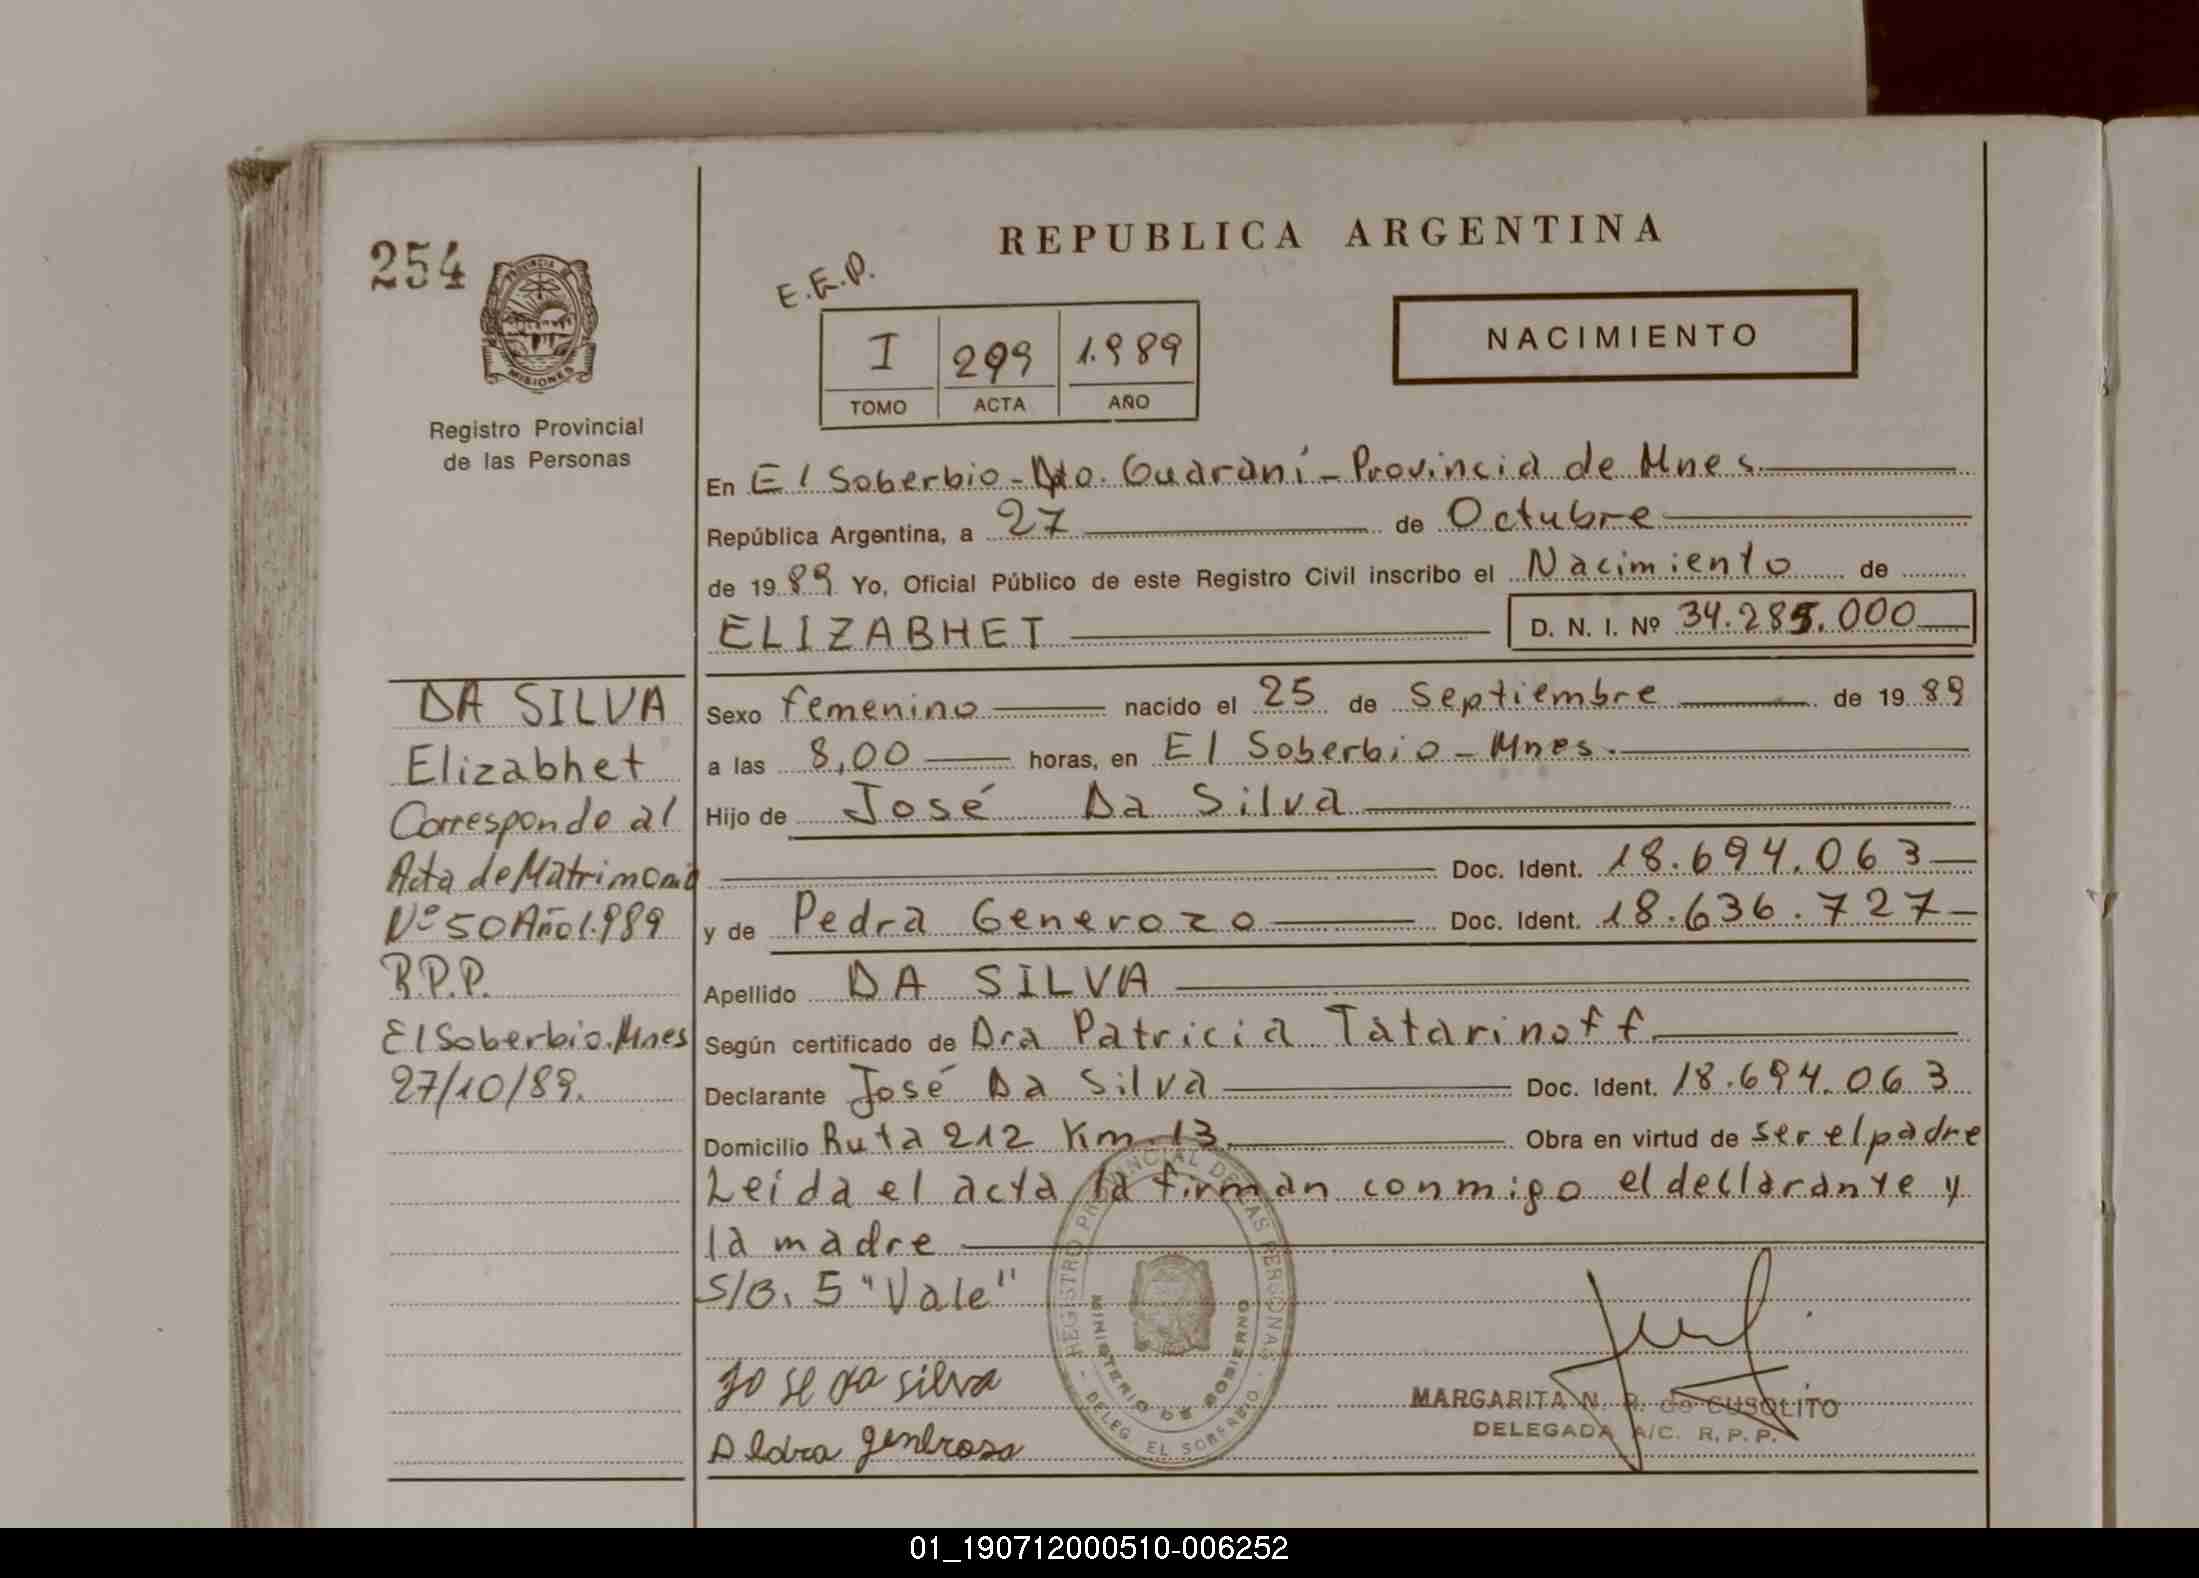 REPUBLICA ARGENTINA
254
PROVINCIA DE
MISIONES
Registro Provincial
de las Personas
E.E.P.
I 299 1.989
TOMO ACTA AÑO
NACIMIENTO
En El Soberbio - Dto. Guaraní - Provincia de Mnes.
República Argentina, a 27 de Octubre
de 1989 Yo, Oficial Público de este Registro Civil inscribo el Nacimiento de
ELIZABHET D. N. I. Nº 34.285.000
DA SILVA
Elizabhet
Corresponde al
Acta de Matrimonio
Nº 50 Año 1.989
R.P.P.
El Soberbio. Mnes
27/10/89.
Sexo femenino nacido el 25 de Septiembre de 1989
a las 8,00 horas, en El Soberbio - Mnes.
Hijo de José Da Silva
Doc. Ident. 18.694.063
y de Pedra Generozo Doc. Ident. 18.636.727
Apellido DA SILVA
Según certificado de Dra Patricia Tatarinoff
Declarante José Da Silva Doc. Ident. 18.694.063
Domicilio Ruta 212 Km. 13 Obra en virtud de ser el padre
Leída el acta la firman conmigo el declarante y
la madre
S/B. 5 "Vale"
REGISTRO PROVINCIAL DE LAS PERSONAS
MINISTERIO DE GOBIERNO
DELEG. EL SOBERBIO
Jose da silva
Pedra generoso
MARGARITA N. R. de CUSOLITO
DELEGADA A/C. R.P.P.
01_190712000510-006252